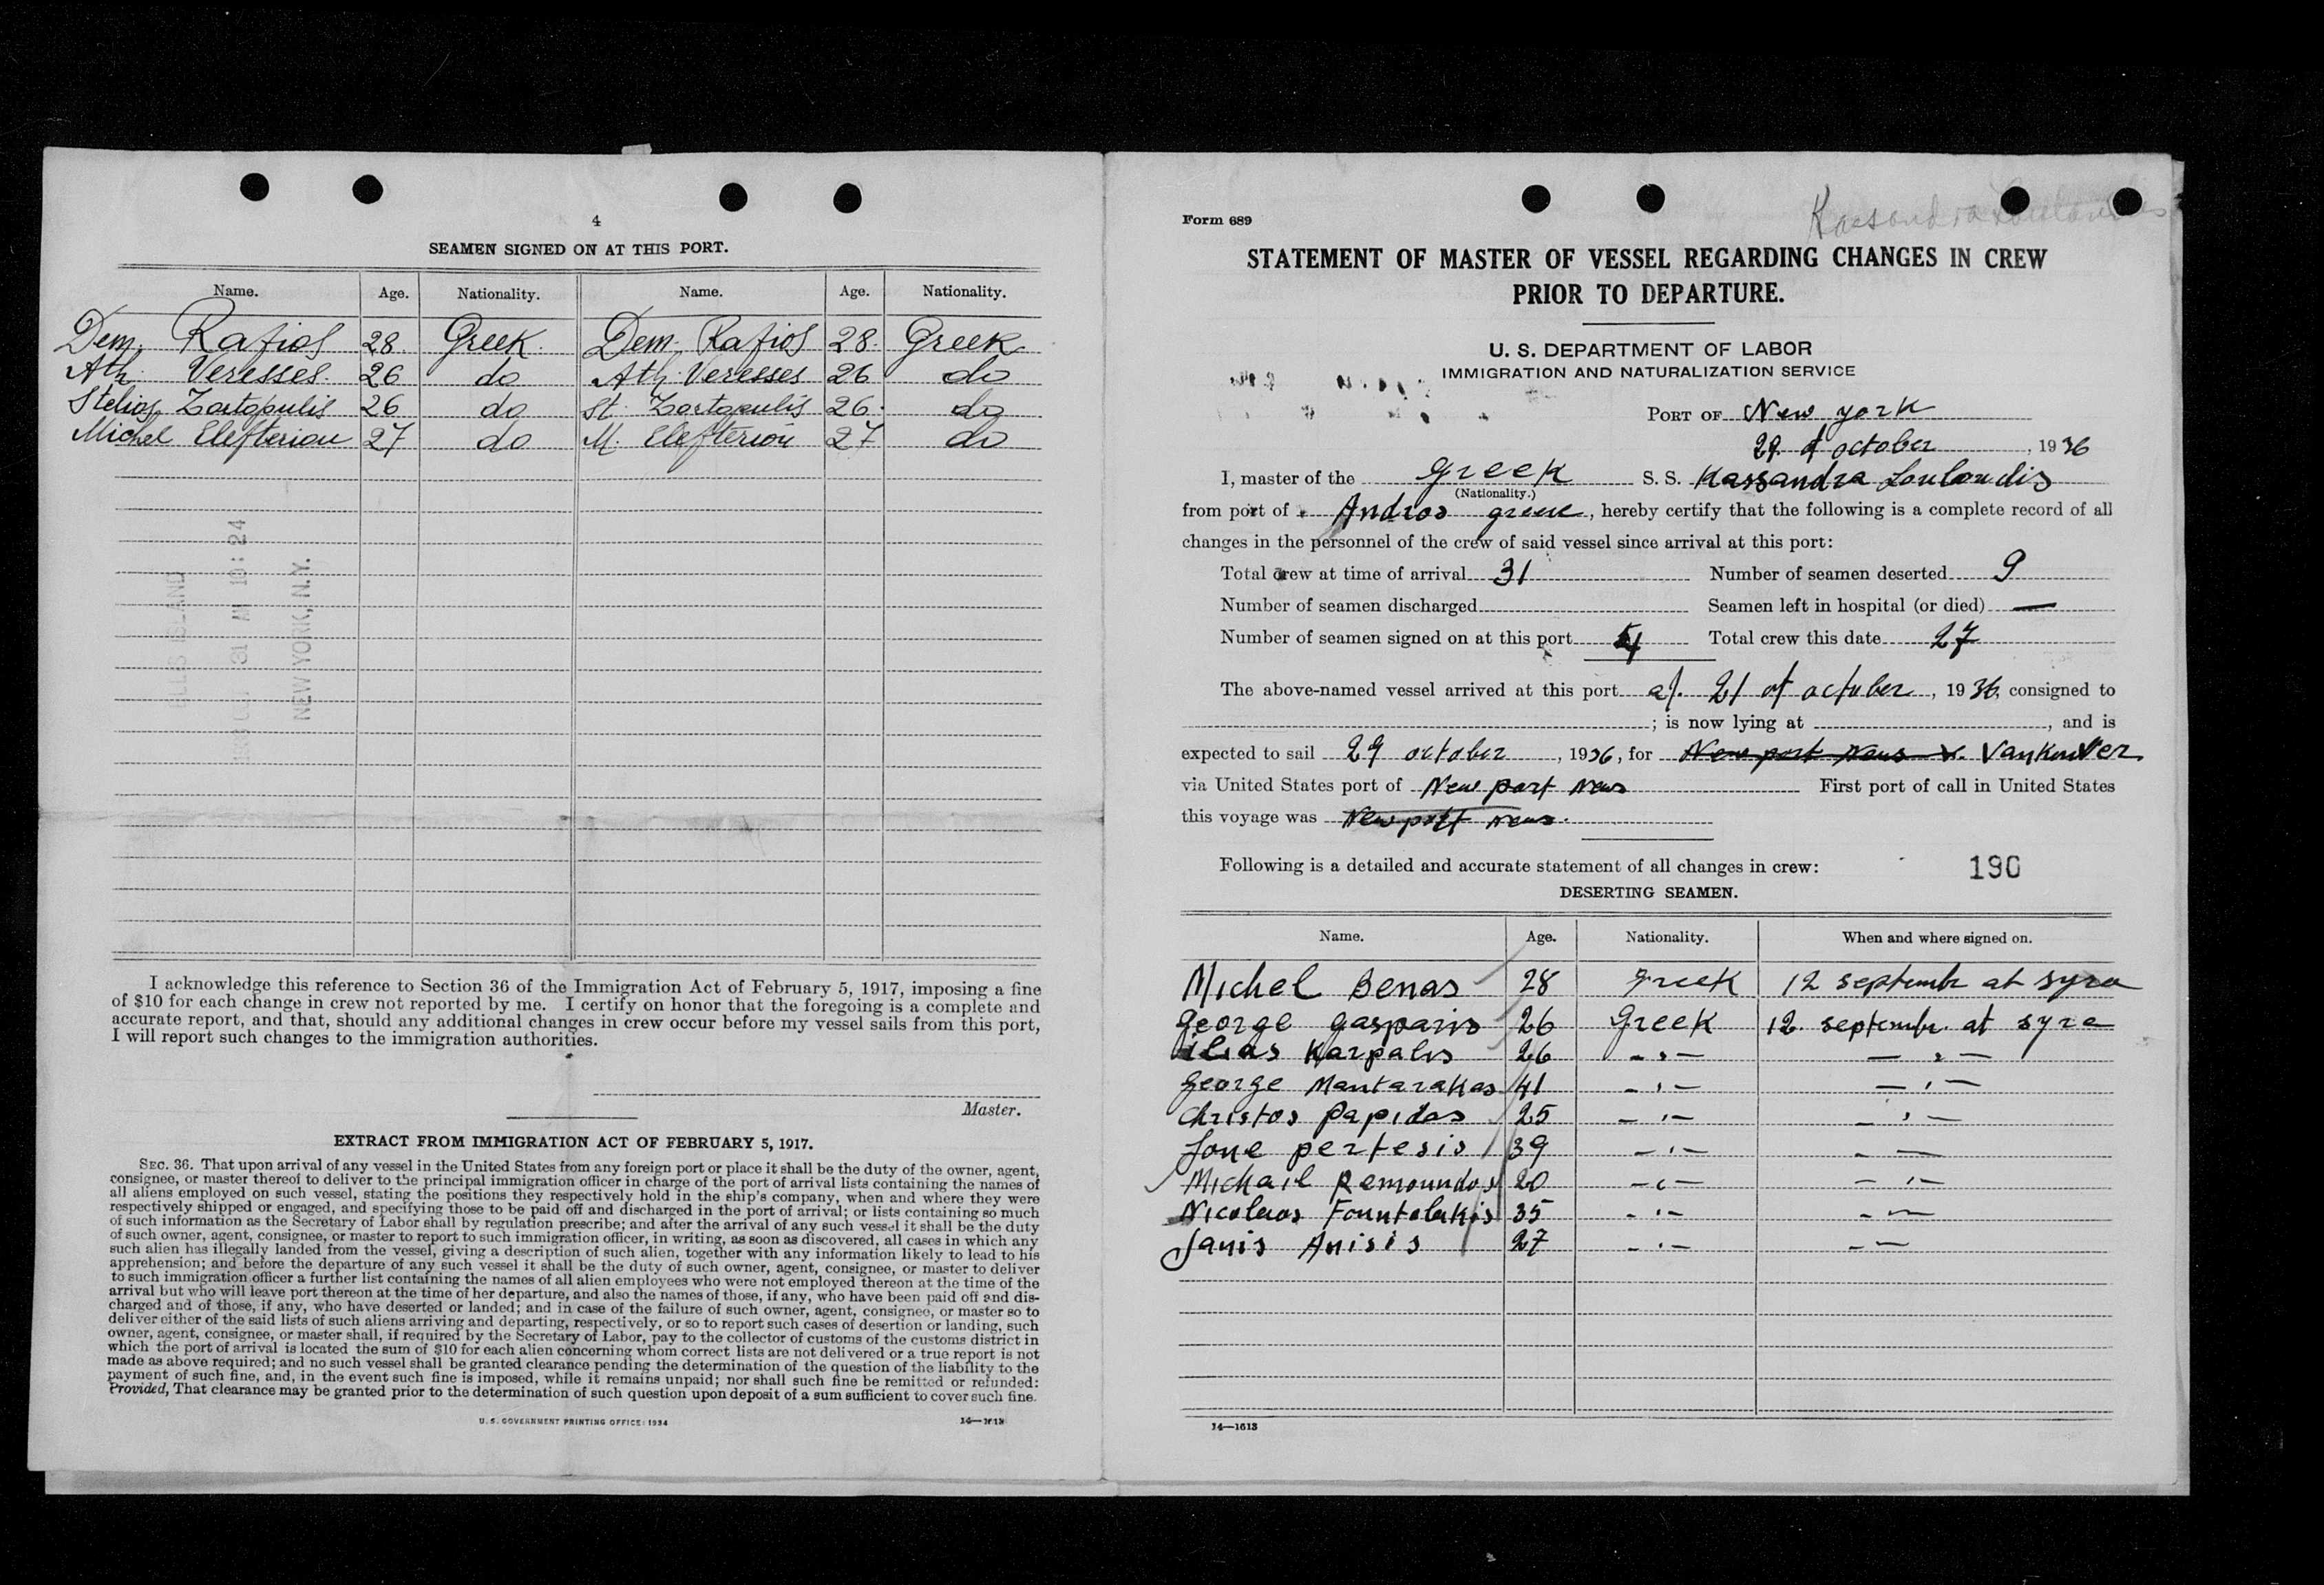 4
SEAMEN SIGNED ON AT THIS PORT.
Name. Age. Nationality. Name. Age. Nationality.
Dem. Rafios 28. Greek. Dem. Rafios 28. Greek
Ath. Veresses. 26 do Ath. Veresses 26 do
Stelios Zortopulis 26 do St. Zortopulis 26. do
Michel Elefteriou 27 do M. Elefteriou 27 do
ELLIS ISLAND
31 AM 10:24
NEW YORK, N.Y.
I acknowledge this reference to Section 36 of the Immigration Act of February 5, 1917, imposing a fine
of $10 for each change in crew not reported by me. I certify on honor that the foregoing is a complete and
accurate report, and that, should any additional changes in crew occur before my vessel sails from this port,
I will report such changes to the immigration authorities.
Master.
EXTRACT FROM IMMIGRATION ACT OF FEBRUARY 5, 1917.
SEC. 36. That upon arrival of any vessel in the United States from any foreign port or place it shall be the duty of the owner, agent,
consignee, or master thereof to deliver to the principal immigration officer in charge of the port of arrival lists containing the names of
all aliens employed on such vessel, stating the positions they respectively hold in the ship's company, when and where they were
respectively shipped or engaged, and specifying those to be paid off and discharged in the port of arrival; or lists containing so much
of such information as the Secretary of Labor shall by regulation prescribe; and after the arrival of any such vessel it shall be the duty
of such owner, agent, consignee, or master to report to such immigration officer, in writing, as soon as discovered, all cases in which any
such alien has illegally landed from the vessel, giving a description of such alien, together with any information likely to lead to his
apprehension; and before the departure of any such vessel it shall be the duty of such owner, agent, consignee, or master to deliver
to such immigration officer a further list containing the names of all alien employees who were not employed thereon at the time of the
arrival but who will leave port thereon at the time of her departure, and also the names of those, if any, who have been paid off and dis-
charged and of those, if any, who have deserted or landed; and in case of the failure of such owner, agent, consignee, or master so to
deliver either of the said lists of such aliens arriving and departing, respectively, or so to report such cases of desertion or landing, such
owner, agent, consignee, or master shall, if required by the Secretary of Labor, pay to the collector of customs of the customs district in
which the port of arrival is located the sum of $10 for each alien concerning whom correct lists are not delivered or a true report is not
made as above required; and no such vessel shall be granted clearance pending the determination of the question of the liability to the
payment of such fine, and, in the event such fine is imposed, while it remains unpaid; nor shall such fine be remitted or refunded:
Provided, That clearance may be granted prior to the determination of such question upon deposit of a sum sufficient to cover such fine.
U. S. GOVERNMENT PRINTING OFFICE: 1934 14—1613
Form 689
Kassandra Louloudis
STATEMENT OF MASTER OF VESSEL REGARDING CHANGES IN CREW
PRIOR TO DEPARTURE.
U. S. DEPARTMENT OF LABOR
IMMIGRATION AND NATURALIZATION SERVICE
PORT OF New york
29 of october, 1936
I, master of the greek S. S. Kassandra Louloudis
(Nationality.)
from port of Andros greece, hereby certify that the following is a complete record of all
changes in the personnel of the crew of said vessel since arrival at this port:
Total crew at time of arrival 31 Number of seamen deserted 9
Number of seamen discharged Seamen left in hospital (or died) —
Number of seamen signed on at this port 4 Total crew this date 27
The above-named vessel arrived at this port at 21 of october, 1936, consigned to
; is now lying at , and is
expected to sail 29 october, 1936, for New port news v. Vankouver
via United States port of New port news First port of call in United States
this voyage was New port news.
Following is a detailed and accurate statement of all changes in crew: 190
DESERTING SEAMEN.
Name. Age. Nationality. When and where signed on.
Michel Benas 28 greek 12 septembr at syra
george gasparis 26 greek 12. septembr. at syra
ilias Karpalis 26 - " - - " -
george Mantarakas 41 - " - - " -
christos papidas 25 - " - - " -
Jone pertesis 39 - " - - —
Michail Remoundos 20 - " - - " -
Nicolaos Fountalakis 35 - " - - " —
Janis Anisis 27 - " - - —
14—1613